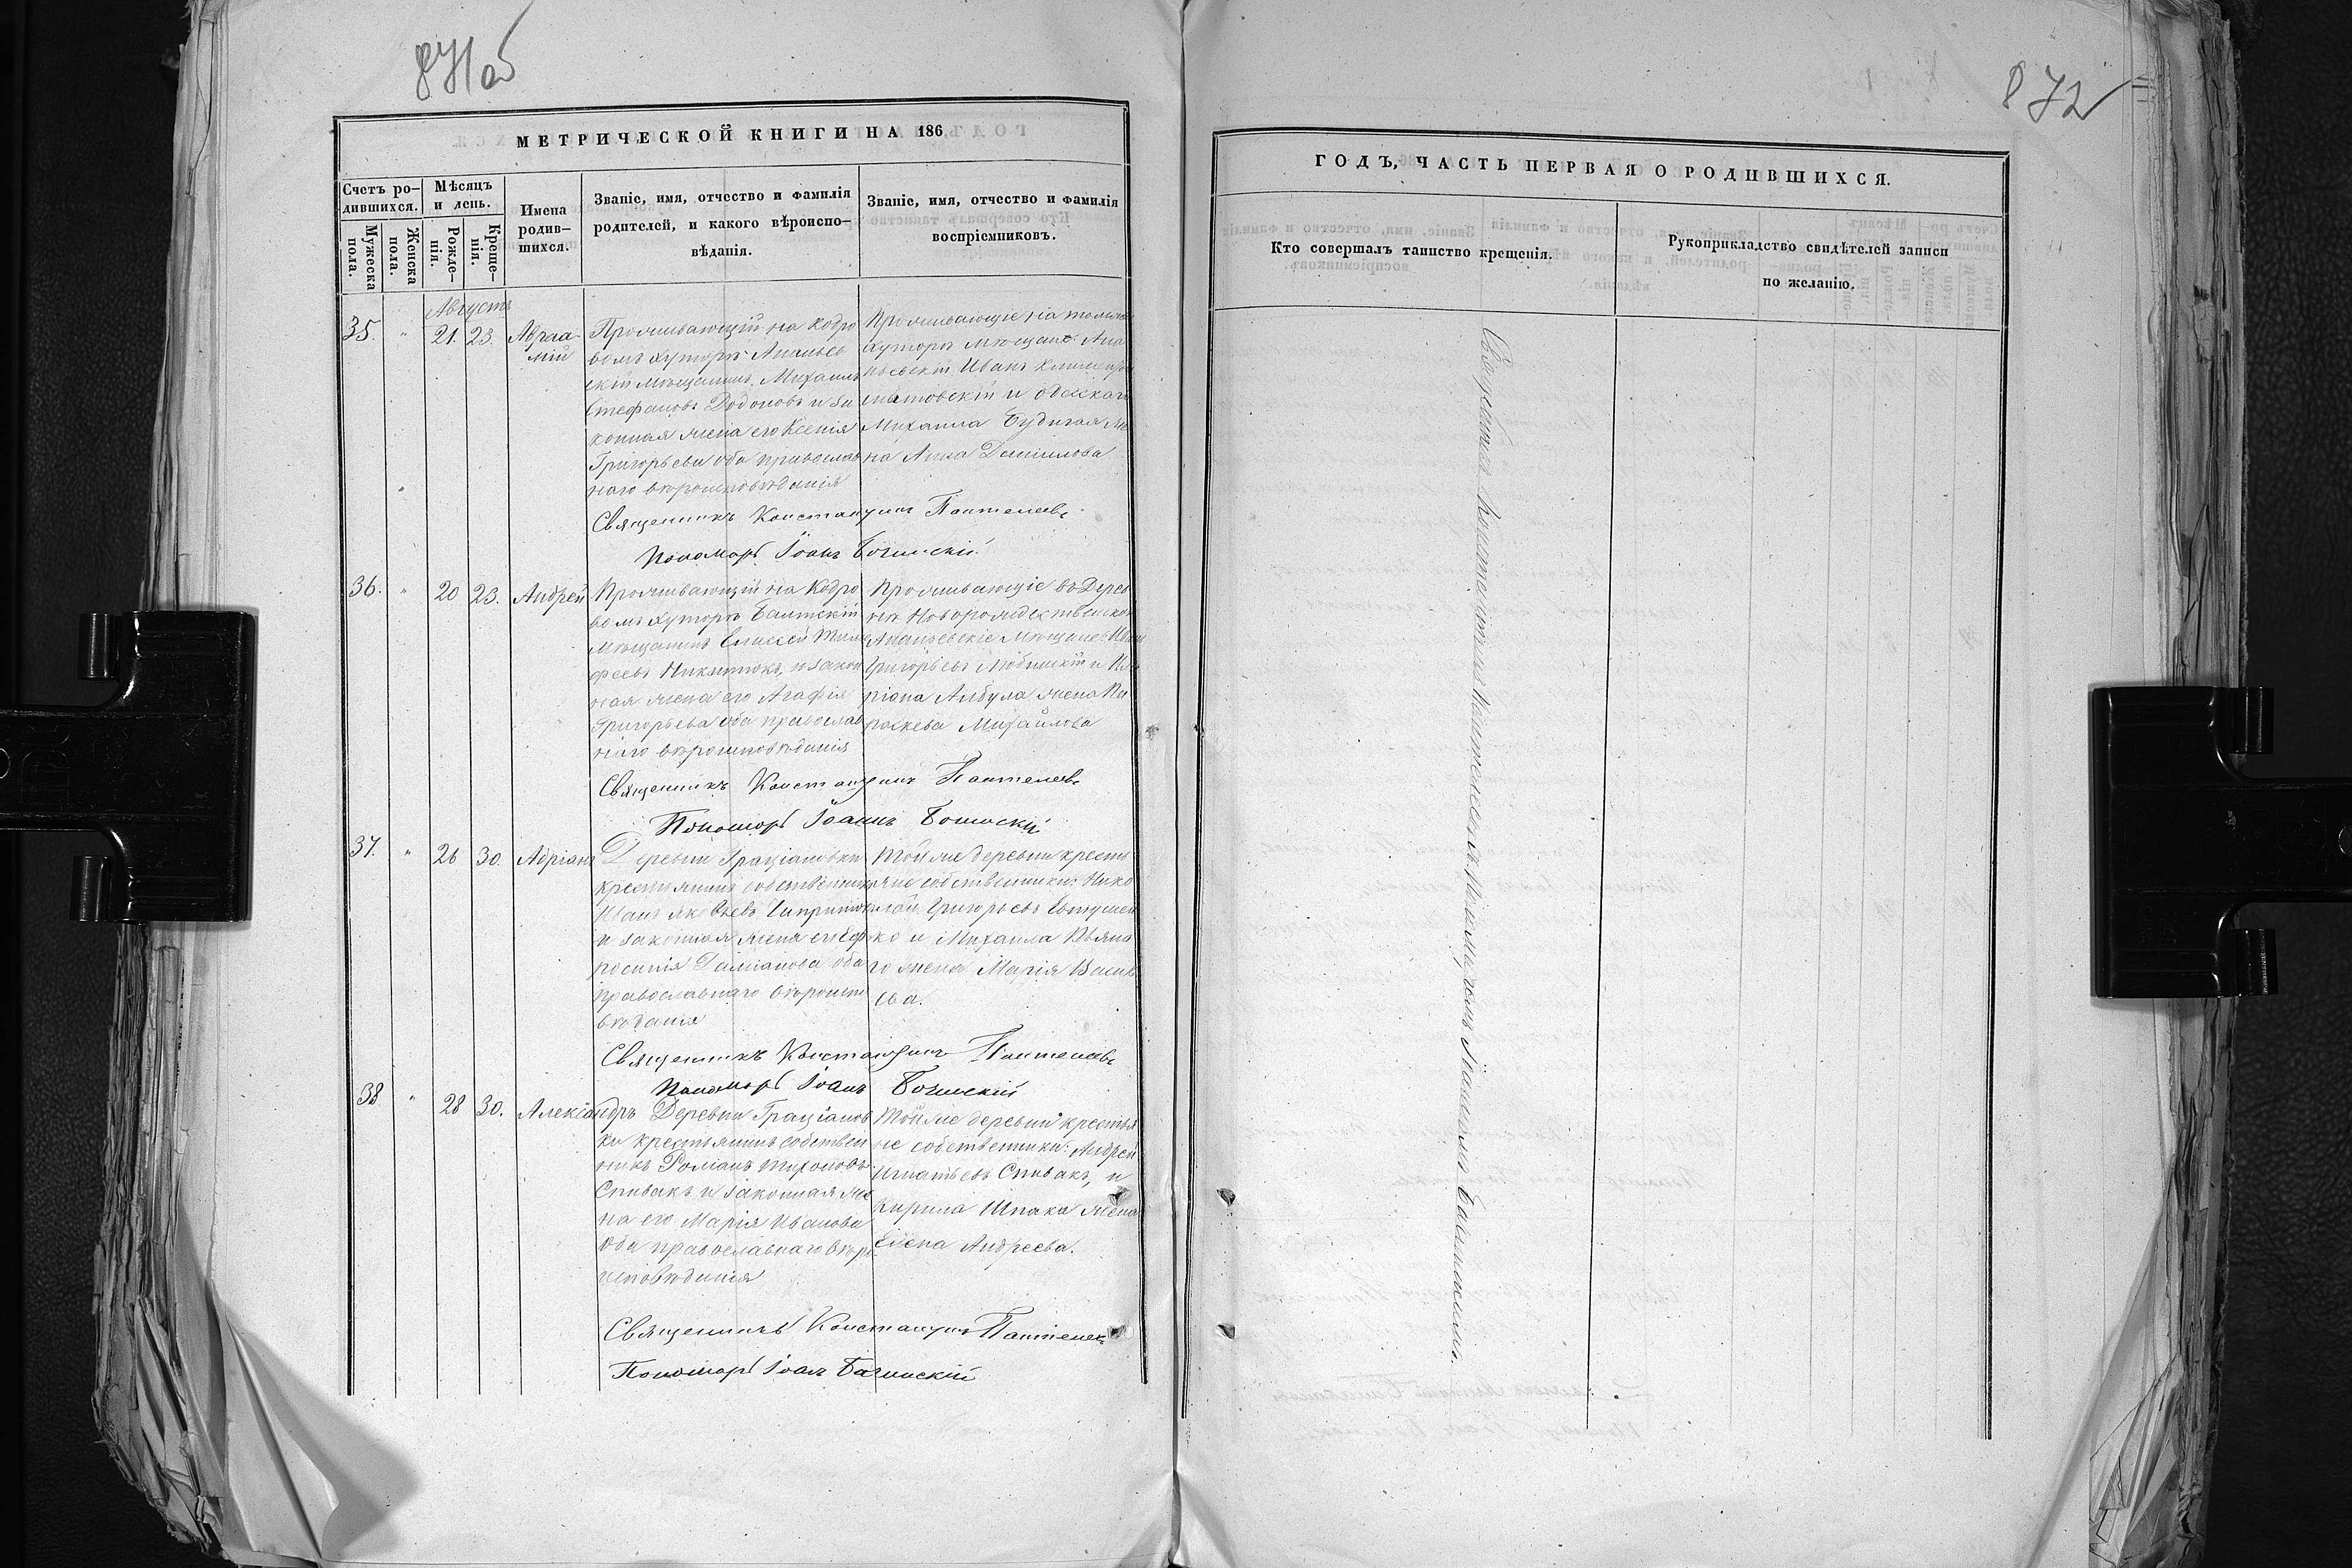 871 об
872
МЕТРИЧЕСКОЙ КНИГИ НА 186
Счетъ ро-
дившихся.
Мѣсяцъ
и день.
Имена
родив-
шихся.
Званіе, имя, отчество и фамилія
родителей, и какого вѣроиспо-
вѣданія.
Званіе, имя, отчество и фамилія
воспріемниковъ.
Мужеска
пола.
Женска
пола.
Рожде-
нія.
Креще-
нія.
Августъ
35. " 21. 23. Авраа-
мій
Проживающій на Кодро
вомъ хуторѣ Ананьев
скій мѣщанинъ Михаилъ
Стефановъ Додоновъ и за
конная жена его Ксенія
Григорьева оба православ
наго вѣроисповѣданія
Проживающіе на томже
хуторѣ мѣщане: Ана
ньевскій Иванъ
и одесскаго
Михаила Же
на Анна Даниилова
Священникъ Константинъ Пантелеевъ
Пономарь Іоаннъ Бочинскій.
36. " 20 23. Андрей
Проживающій на Кодро
вомъ хуторѣ Балтскій
мѣщанинъ Елисей Тимо
феевъ Никитюкъ, и закон
ная жена его Агафія
Григорьева оба православ
наго вѣроисповѣданія
Проживающіе въ Дерев
нѣ Новорождественской
Ананьевскіе мѣщане: Иванъ
Григорьевъ и Ила
ріона Албула жена Па
раскева Михайлова
Священникъ Константинъ Пантелеевъ
Пономарь Іоаннъ Бочинскій
37. " 26 30. Адріанъ
Деревни Граціановки
крестьянинъ собственникъ
Иванъ Яковлевъ
и законная жена его Еф
росинія Даміанова оба
православнаго вѣроиспо
вѣданія
Той же деревни кресть
яне собственники: Нико
лай Григорьевъ Евтушен
ко и Михаила
жена Марія Василь
ева.
Священникъ Константинъ Пантелеевъ
Пономарь Іоаннъ Бочинскій
38 " 28 30. Александръ
Деревни Граціанов
ки крестьянинъ собствен
никъ Романъ Тихоновъ
Спивакъ и законная же
на его Марія Иванова
оба православнаго вѣро
исповѣданія
Той же деревни крестья
не собственники: Андрей
Игнатьевъ Спивакъ, и
Кирила Шпака жена
Елена Андреева.
Священникъ Константинъ Пантелеевъ
Пономарь Іоаннъ Бочинскій
ГОДЪ, ЧАСТЬ ПЕРВАЯ О РОДИВШИХСЯ.
Кто совершалъ таинство крещенія.
Рукоприкладство свидѣтелей записи
по желанію.
Священникъ Константинъ Пантелеевъ съ пономаремъ Іоанномъ Бочинскимъ.